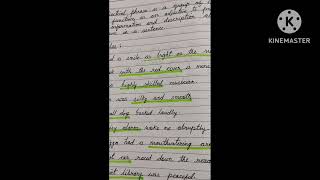 phrase is a group of
function as an adjective to
information and description
in a sentence.
a smile as bright as the
with the red cover is
highly skilled musician.
was silky and smooth
dog barked loudly.
alarm woke me abruptly.
had a mouthwatering
car raced down the
library was peaceful.
K
KINEMASTER